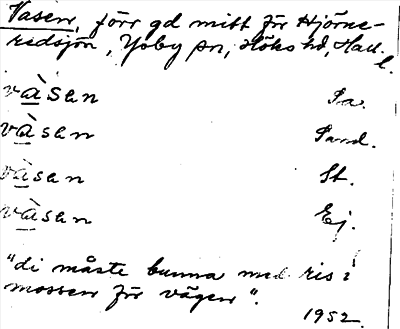 Vasen, förr gd mitt för Hjörne-
redsjön, Ysby sn, Höks hd, Hall.
vàsen Sa.
vàsen Sand.
vàsen St.
vàsen Ej.
"di måste bunna med ris i
mossen för vägen".
1952.